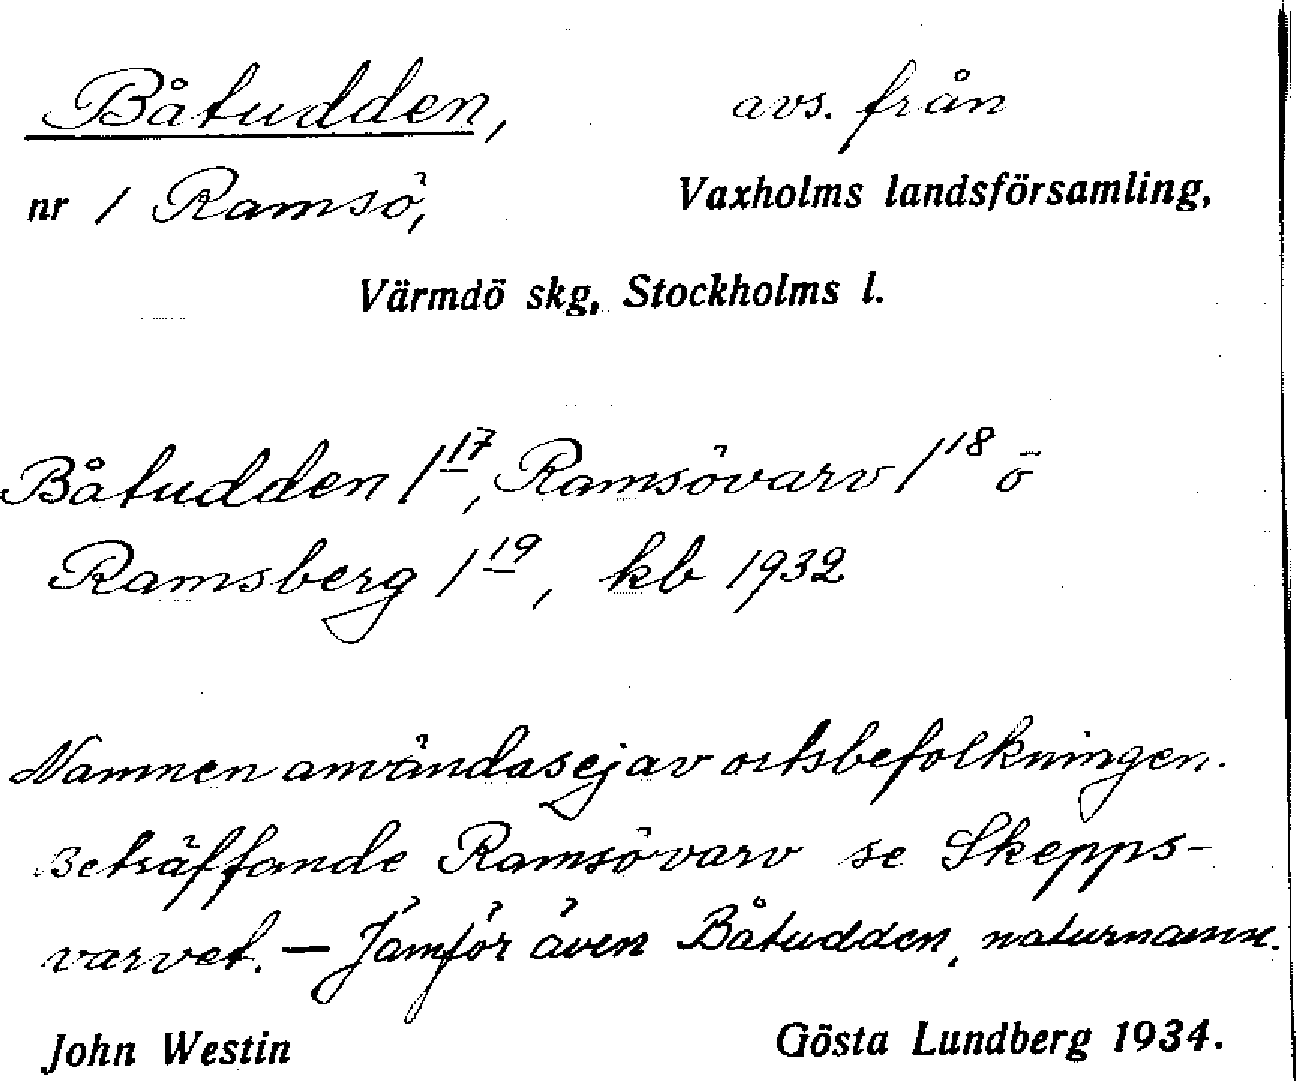 Båtudden, avs. från
nr 1 Ramsö, Vaxholms landsförsamling,
Värmdö skg, Stockholms l.
Båtudden 1¹⁷, Ramsövarv 1¹⁸ o
Ramsberg 1¹⁹, kb 1932
Namnen användas ej av ortsbefolkningen.
Beträffande Ramsövarv se Skepps-
varvet. — Jämför även Båtudden, naturnamn.
John Westin Gösta Lundberg 1934.